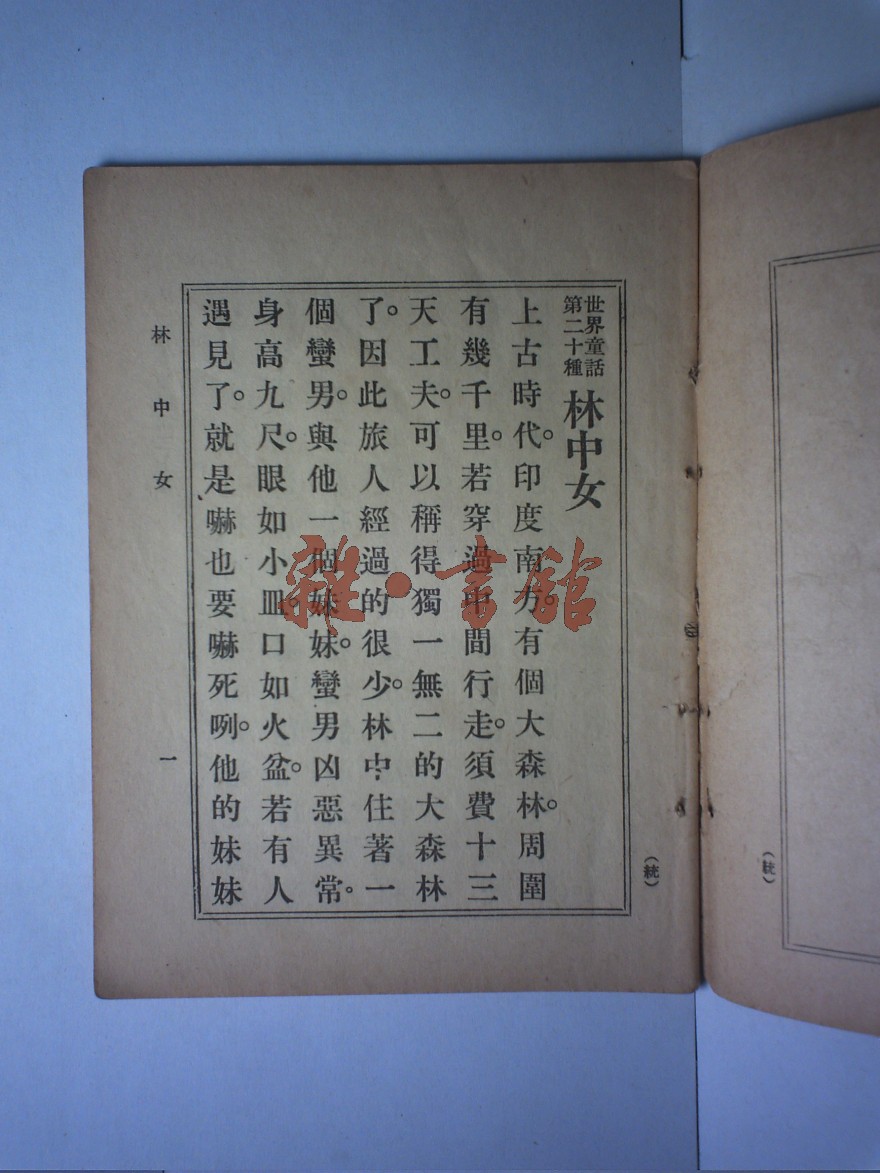 世界童話
第二十種
林中女
上古時代。印度南方。有個大森林。周圍
有幾千里。若穿過中間行走。須費十三
天工夫。可以稱得獨一無二的大森林
了。因此旅人經過的很少。林中住著一
個蠻男。與他一個妹妹。蠻男凶惡異常。
身高九尺。眼如小皿。口如火盆。若有人
遇見了。就是嚇也要嚇死咧。他的妹妹
林中女
一
(統)
(統)
雜·書館